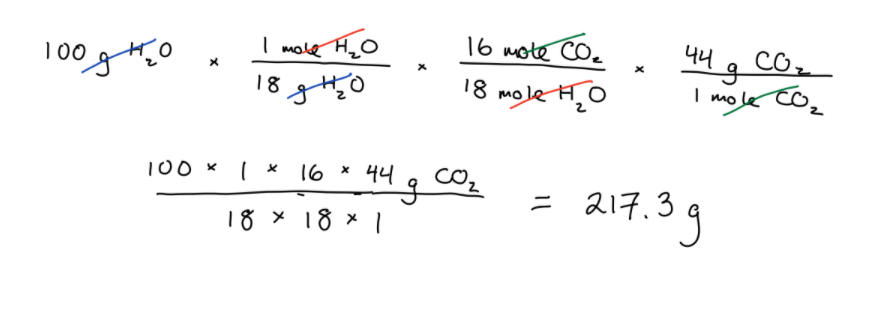 100 g H₂O × 1 mole H₂O / 18 g H₂O × 16 mole CO₂ / 18 mole H₂O × 44 g CO₂ / 1 mole CO₂
100 × 1 × 16 × 44 g CO₂ / 18 × 18 × 1 = 217.3 g